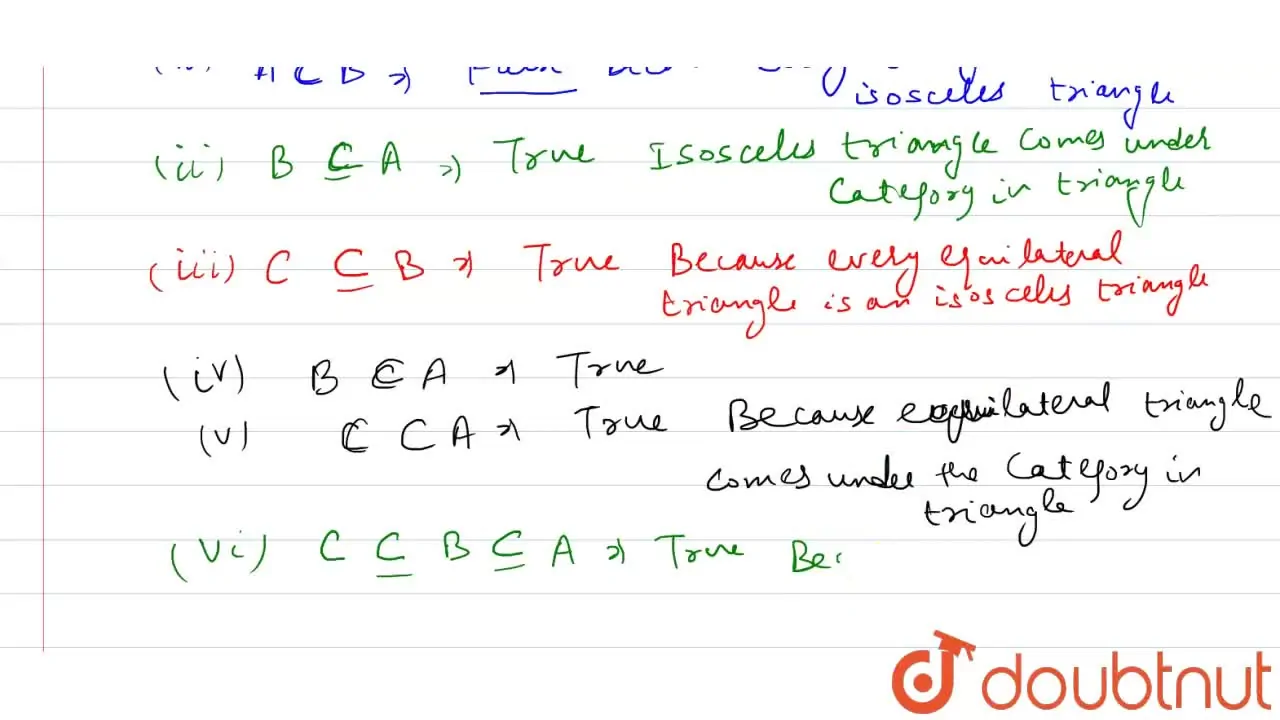 A ⊂ B ⇒
isosceles triangle
(ii) B ⊆ A ⇒ True Isosceles triangle comes under
Category in triangle
(iii) C ⊆ B ⇒ True Because every equilateral
triangle is an isosceles triangle
(iv) B ⊂ A ⇒ True
(v) C ⊂ A ⇒ True Because equilateral triangle
comes under the Category in
triangle
(vi) C ⊆ B ⊆ A ⇒ True Bec
doubtnut